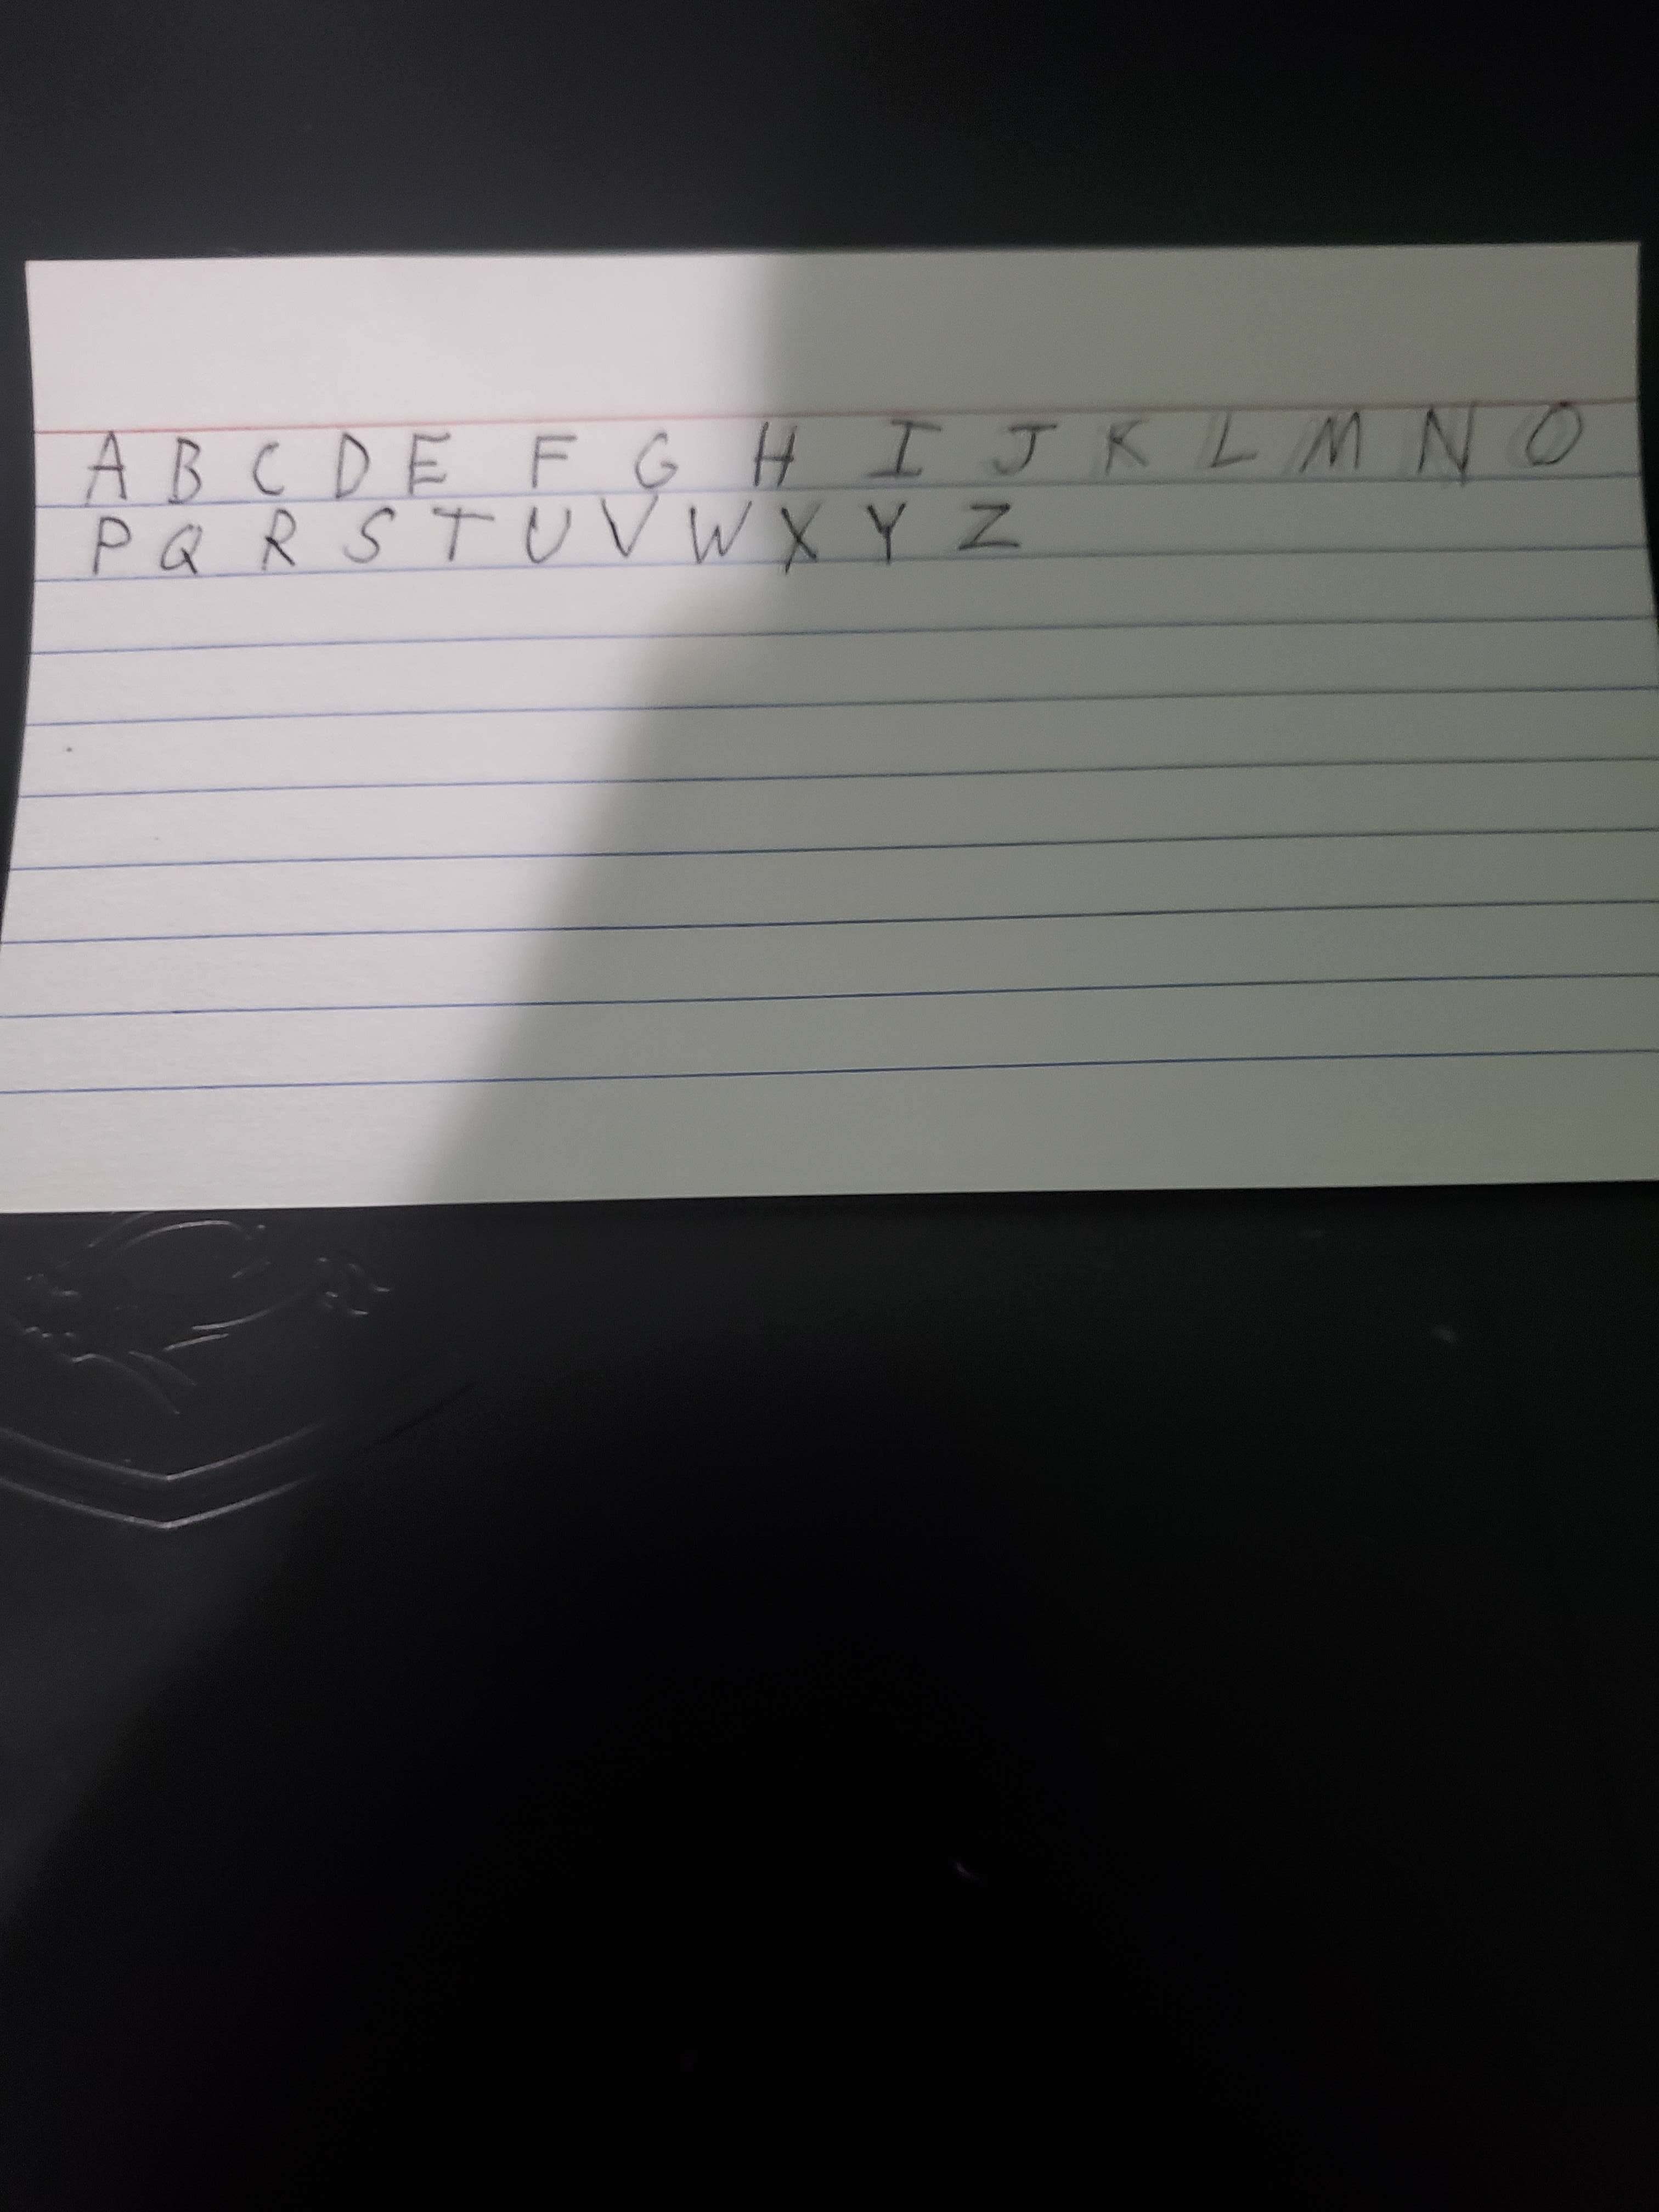 A B C D E F G H I J K L M N O
P Q R S T U V W X Y Z